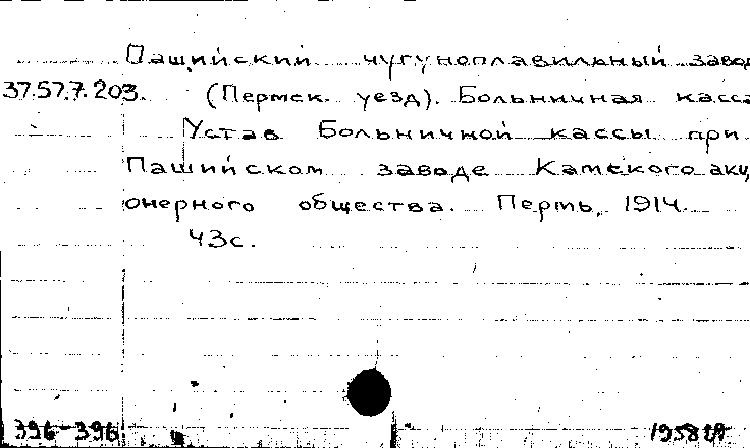 Пашийский чугуноплавильный завод
37.57.7.203. (Пермск. уезд). Больничная касса
Устав Больничной кассы при
Пашийском заводе Камского акци
онерного общества. Пермь, 1914.
43с.
396-396